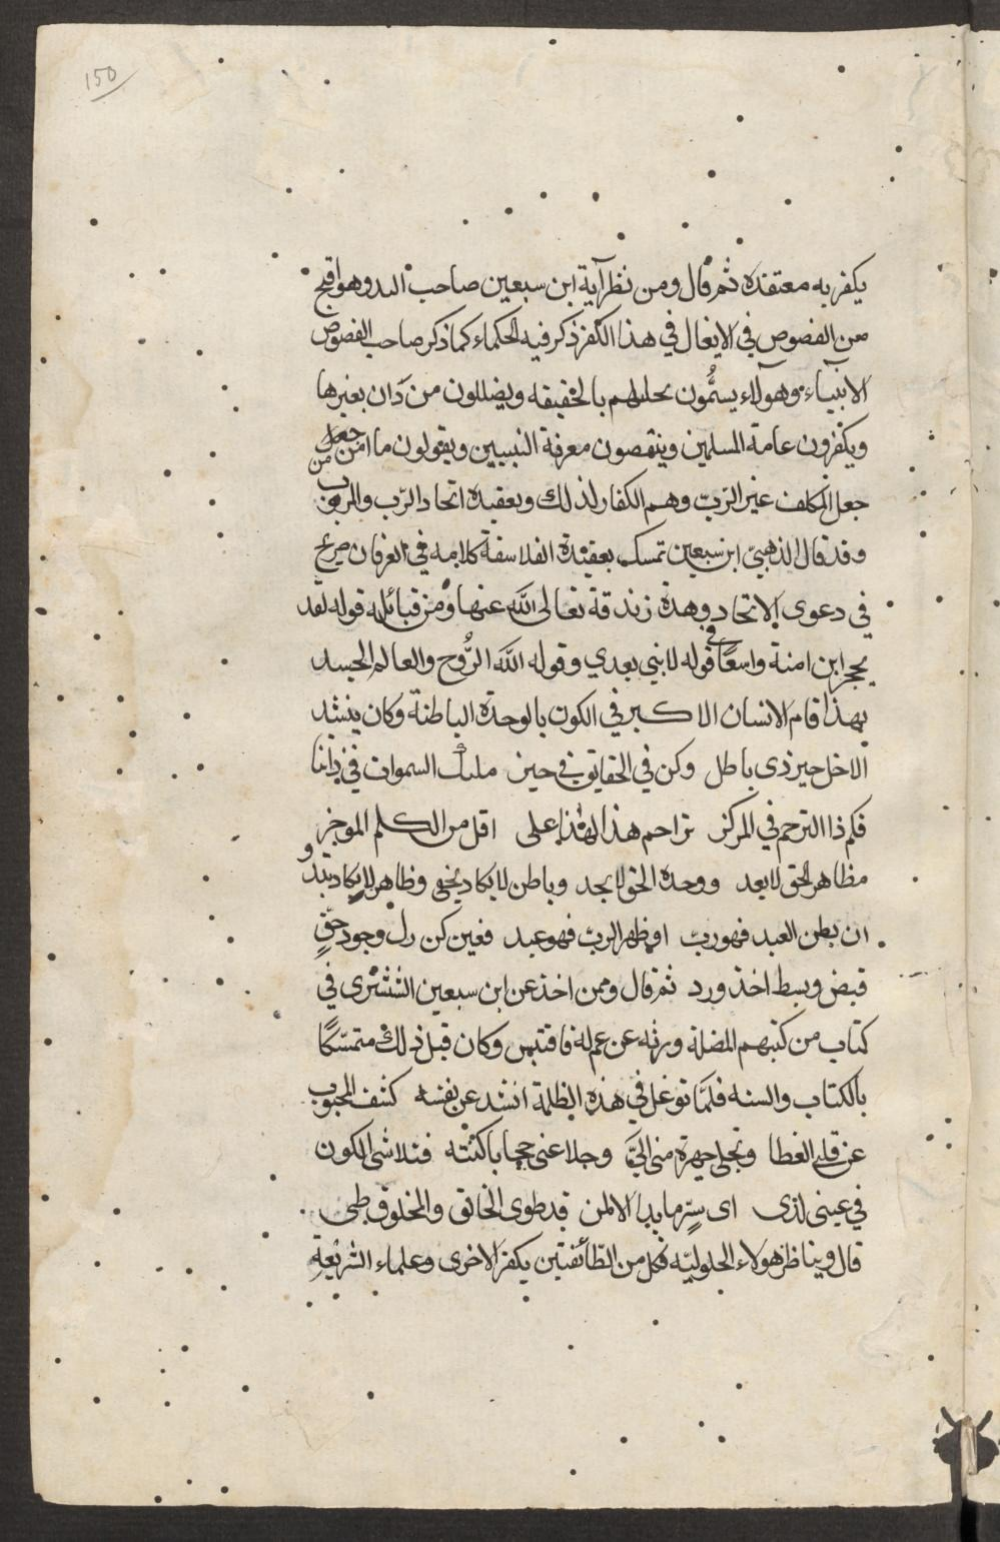 150
يكفر به معتقده ثم قال ومن نظرآية ابن سبعين صاحب البد وهو اقبح
من الفصوص في الايغال في هذا الكفر ذكر فيه الحكماء كما ذكر صاحب الفصوص
الانبياء وهوآلاء يسمُّون نحلتهم بالحقيقه ويضللون من دَان بغيرها
ويكفرون عامة المسلمين وينقصون معرفة النبيين ويقولون ما امن من جعل
جعل المكلف غير الرّبّ وهم الكفار لذلك وبعقيدة اتحاد الرّب والمربوب
وقد قال الذهبيّ ابن سبعين تمسك بعقيدة الفلاسفة كلامه في العرفان صريح
في دعوى الاتحاد وهذة زندقة تعالى اللّه عنها ومن قبائله قوله لقد
يحجر ابن امنة واسعًا في قوله لا نبي بعدي وقوله اللّه الرُّوح والعالم الجسد
بهذا قام الانسان الاكبر في الكون بالوحدة الباطنة وكان ينشد
الاخل حيز ذى باطل وكن في الحقايق في حيز ملئت السموات في ذاتنا
فكم ذا التزحم في المركز تزاحم هذا لهذا على اقل من الكلم الموجز
مظاهر الحق لا يعد ووحدة الحق لا يحد وباطن لا يكاد يخفى وظاهر لا يكاد يبدو
ان بطن العبد فهو ربّ او يظهر الرب فهو عبد فعين كن زل وجود حقٍ
قبض وبسط اخذ ورد ثم قال وممن اخذ عن ابن سبعين الششتري في
كتاب من كتبهم المضلة ورثه عن عم له فاقتبس وكان قبل ذلك متمسّكًا
بالكتاب والسنه فلمّا توغل في هذه الظلمة انشد عن نفسه كشف المحبوب
عن قلبي الغطا وتجلى جهرة مني اليَّ وجلا عني حجابا كنته فتلاشى الكون
في عيني لذى اى سِرٍّ ما بدا الا لمن قد طوى الخالق والمخلوق طى
قال ويناظر هولاء الحلوليّه فكل من الطّائفتين يكفر الاخرى وعلماء الشريعة